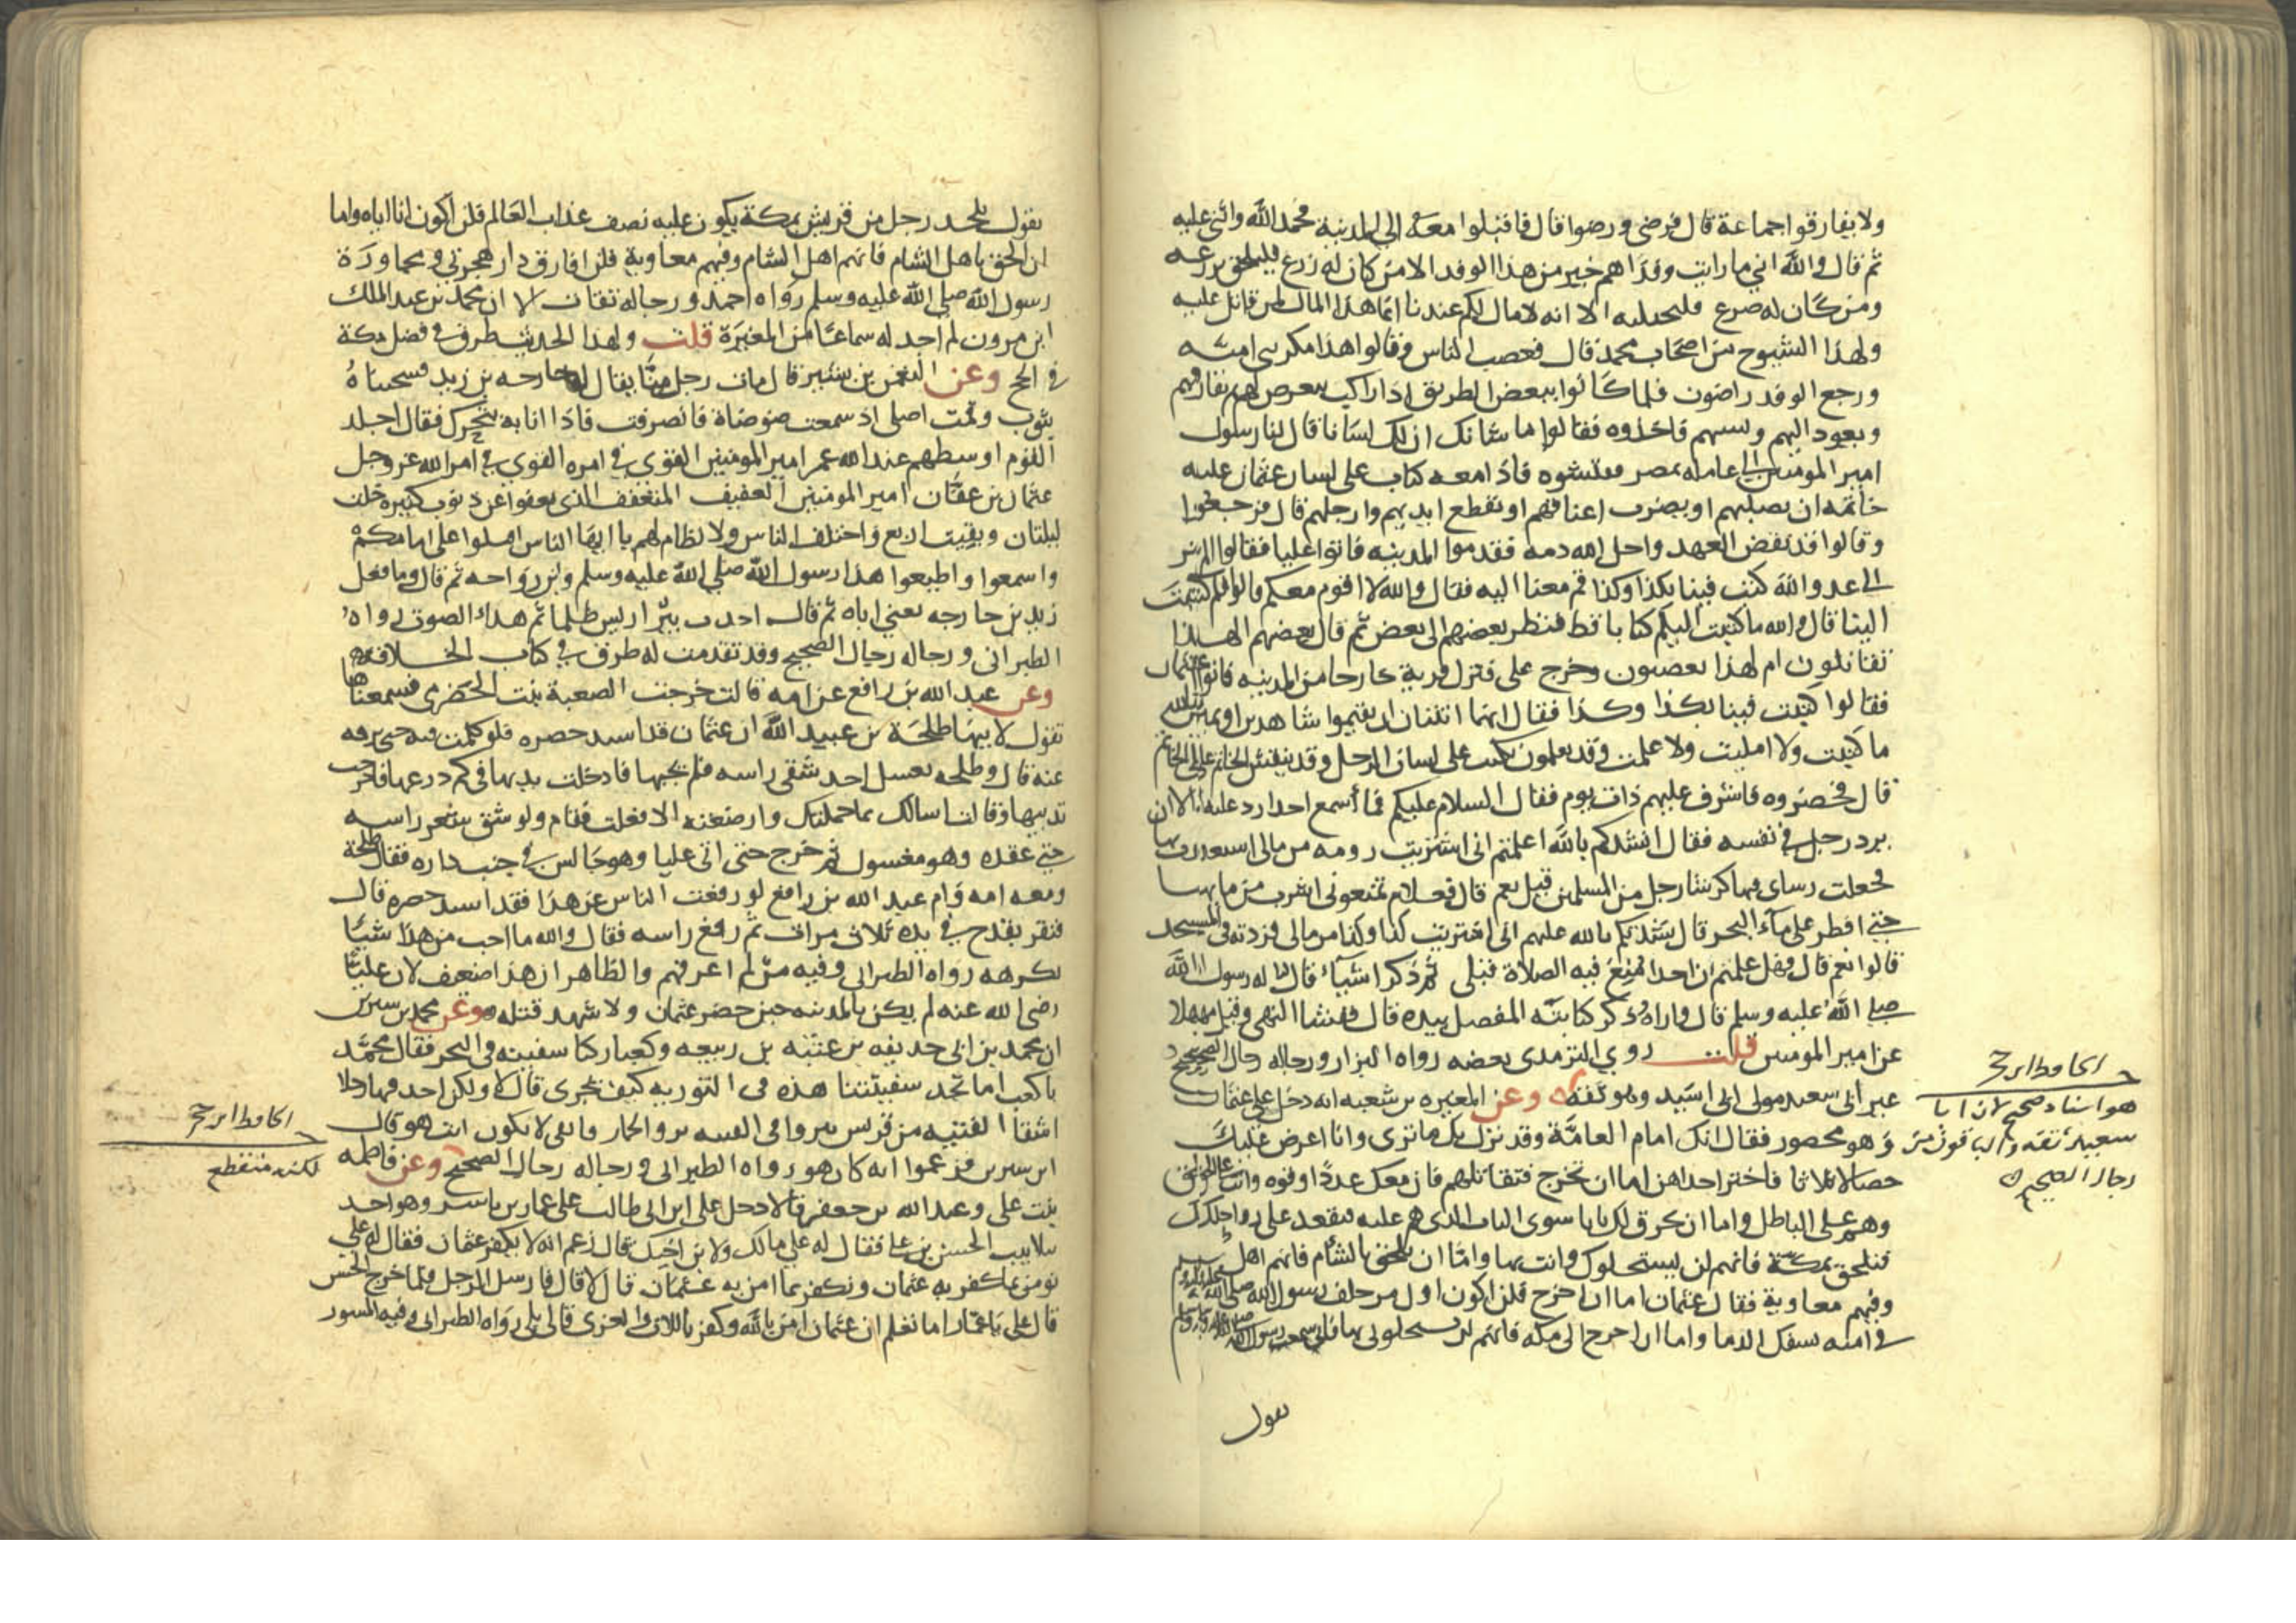 ولا يفارقوا جماعة قال فرضي ورضوا قال فاقبلوا معه الى المدينة فحمد الله واثنى عليه
ثم قال والله اني ما رايت وفدا هم خير من هذا الوفد الا من كان له زرع فليلحق بزرعه
ومن كان له ضرع فليحتلبه الا انه لا مال لكم عندنا انما هذا المال لمن قاتل عليه
ولهذا الشيوخ من اصحاب محمد قال فغضب الناس وقالوا هذا مكر بني امية
ورجع الوفد راضون فلما كانوا ببعض الطريق اذا راكب يتعرض لهم يفارقهم
ويعود اليهم ويسبهم فاخذوه فقالوا ما شانك ان لك لشانا قال انا رسول
امير المومنين الى عامله بمصر ففتشوه فاذا معه كتاب على لسان عثمان عليه
خاتمه ان يصلبهم او يضرب اعناقهم او يقطع ايديهم وارجلهم قال فرجعوا
وقالوا قد نقض العهد واحل الله دمه فقدموا المدينه فاتوا عليا فقالوا الم تر
الى عدو الله كتب فينا بكذا وكذا قم معنا اليه فقال والله لا اقوم معكم قالوا فلم كتبت
الينا قال والله ما كتبت اليكم كتابا قط فنظر بعضهم الى بعض ثم قال بعضهم الهذا
تقاتلون ام لهذا تغضبون وخرج علي فنزل قرية خارجا من المدينه فاتوا عثمان
فقالوا كتبت فينا بكذا وكذا فقال انما اثنتان ان تقيموا شاهدين او يمين بالله
ما كتبت ولا امليت ولا علمت وقد تعلمون يكتب على لسان الرجل وقد ينقش الخاتم على الخاتم
قال فحصروه فاشرف عليهم ذات يوم فقال السلام عليكم فما اسمع احدا رد عليه الا ان
يرد رجل في نفسه فقال انشدكم بالله اعلمتم اني اشتريت رومه من مالي استعذب بها
فجعلت رشاي فيها كرشا رجل من المسلمين قيل نعم قال فعلام تمنعوني اشرب من مائها
حتى افطر على ماء البحر قال نشدتكم بالله علمتم اني اشتريت كذا وكذا من مالي فزدته في المسجد
قالوا نعم قال فهل علمتم ان احدا منع فيه الصلاة قبلي ثم ذكر اشياء قال له رسول الله
صلى الله عليه وسلم قال واراه ذكر كتابته المفصل بيده قال ففشا النهي وقيل مهلا
عن امير المومنين قلت روي الترمذي بعضه رواه البزار ورجاله رجال الصحيح
غير ابي سعيد مولى ابي اسيد وهو ثقة وعن المغيره بن شعبه انه دخل على عثمان
وهو محصور فقال انك امام العامة وقد نزل بك ما ترى وانا اعرض عليك
خصالا ثلاثا فاختر احداهن اما ان تخرج فتقاتلهم فان معك عددا وقوه وانت على الحق
وهم على الباطل واما ان نخرق لك بابا سوى الباب الذي هم عليه فتقعد على رواحلك
فتلحق بمكة فانهم لن يستحلوك وانت بها واما ان تلحق بالشام فانهم اهل
وفيهم معاوية فقال عثمان اما ان اخرج فلن اكون اول من خلف رسول الله صلى الله عليه وسلم
في امته بسفك الدما واما ان اخرج الى مكه فانهم لن يستحلوني بها فاني سمعت رسول الله
يقول
الحافظ ابن حجر
هو اسناد صحيح لان ابا
سعيد ثقة والباقون من
رجال الصحيح
يقول يلحد رجل من قريش بمكة يكون عليه نصف عذاب العالم فلن اكون انا اياه واما
ان الحق باهل الشام فانهم اهل الشام وفيهم معاوية فلن افارق دار هجرتي ومجاورة
رسول الله صلى الله عليه وسلم رواه احمد ورجاله ثقات الا ان محمد بن عبد الملك
ابن مرون لم اجد له سماعا من المغيرة قلت ولهذا الحديث طرق في فضل مكة
في الحج وعن النعمن بن بشير قال مات رجل منا يقال له خارجه بن زيد فسجيناه
بثوب وقمت اصلي اذ سمعت ضوضاة فانصرفت فاذا انا به يتحرك فقال اجلد
القوم اوسطهم عند الله عمر امير المومنين القوي في امره القوي في امر الله عز وجل
عثمان بن عفان امير المومنين العفيف المتعفف الذي يعفو عن ذنوب كثيره خلت
ليلتان وبقيت اربع واختلف الناس ولا نظام لهم يا ايها الناس اقبلوا على امامكم
واسمعوا واطيعوا هذا رسول الله صلى الله عليه وسلم وابن رواحه ثم قال وما فعل
زيد بن خارجه يعني اباه ثم قال اخذت بئر اريس ظلما ثم هدا الصوت رواه
الطبراني ورجاله رجال الصحيح وقد تقدمت له طرق في كتاب الخلافه
وعن عبد الله بن رافع عن امه قالت خرجت الصعبة بنت الحضرمي فسمعناها
تقول لابنها طلحة بن عبيد الله ان عثمان قد اشتد حصره فلو كلمت فيه حتى يرفه
عنه قال وطلحه يغسل احد شقي راسه فلم يجبها فادخلت يديها في كم درعها فاخرجت
ثدييها وقالت اسالك بما حملتك وارضعتك الا فعلت فقام ولوى شق شعر راسه
حتى عقده وهو مغسول ثم خرج حتى اتى عليا وهو جالس في جنب داره فقال طلحة
ومعه امه وام عبد الله بن رافع لو رفعت الناس عن هذا فقد اشتد حصره قال
فنقر بقدح في يده ثلاث مرات ثم رفع راسه فقال والله ما احب من هذا شيئا
تكرهه رواه الطبراني وفيه من لم اعرفهم والظاهر ان هذا ضعيف لان عليا
رضي الله عنه لم يكن بالمدينه حين حصر عثمان ولا شهد قتله وعن محمد بن سيرين
ان محمد بن ابي حذيفه بن عتبه بن ربيعه وكعبا ركبا سفينه في البحر فقال محمد
يا كعب اما تجد سفينتنا هذه في التوريه كيف تجري قال لا ولكن اجد فيها رجلا
اشقا الفتيه من قريش ينزوا في الفتنه نزو الحمار فاتقي لا يكون انت هو قال
ابن سيرين فزعموا انه كان هو رواه الطبراني ورجاله رجال الصحيح وعن فاطمه
بنت علي وعبد الله بن جعفر قالا دخل علي ابن ابي طالب على عمار بن ياسر وهو اخذ
بتلابيب الحسن بن علي فقال له علي مالك ولابن اخيك قال زعم انه لا يكفر عثمان فقال له علي
تومن بما كفر به عثمان وتكفر بما امن به عثمان قال لا قال فارسل الرجل فلما خرج الحسن
قال علي يا عمار اما تعلم ان عثمان امن بالله وكفر باللات والعزى قال بلى رواه الطبراني وفيه المسور
الحافظ ابن حجر
لكنه منقطع